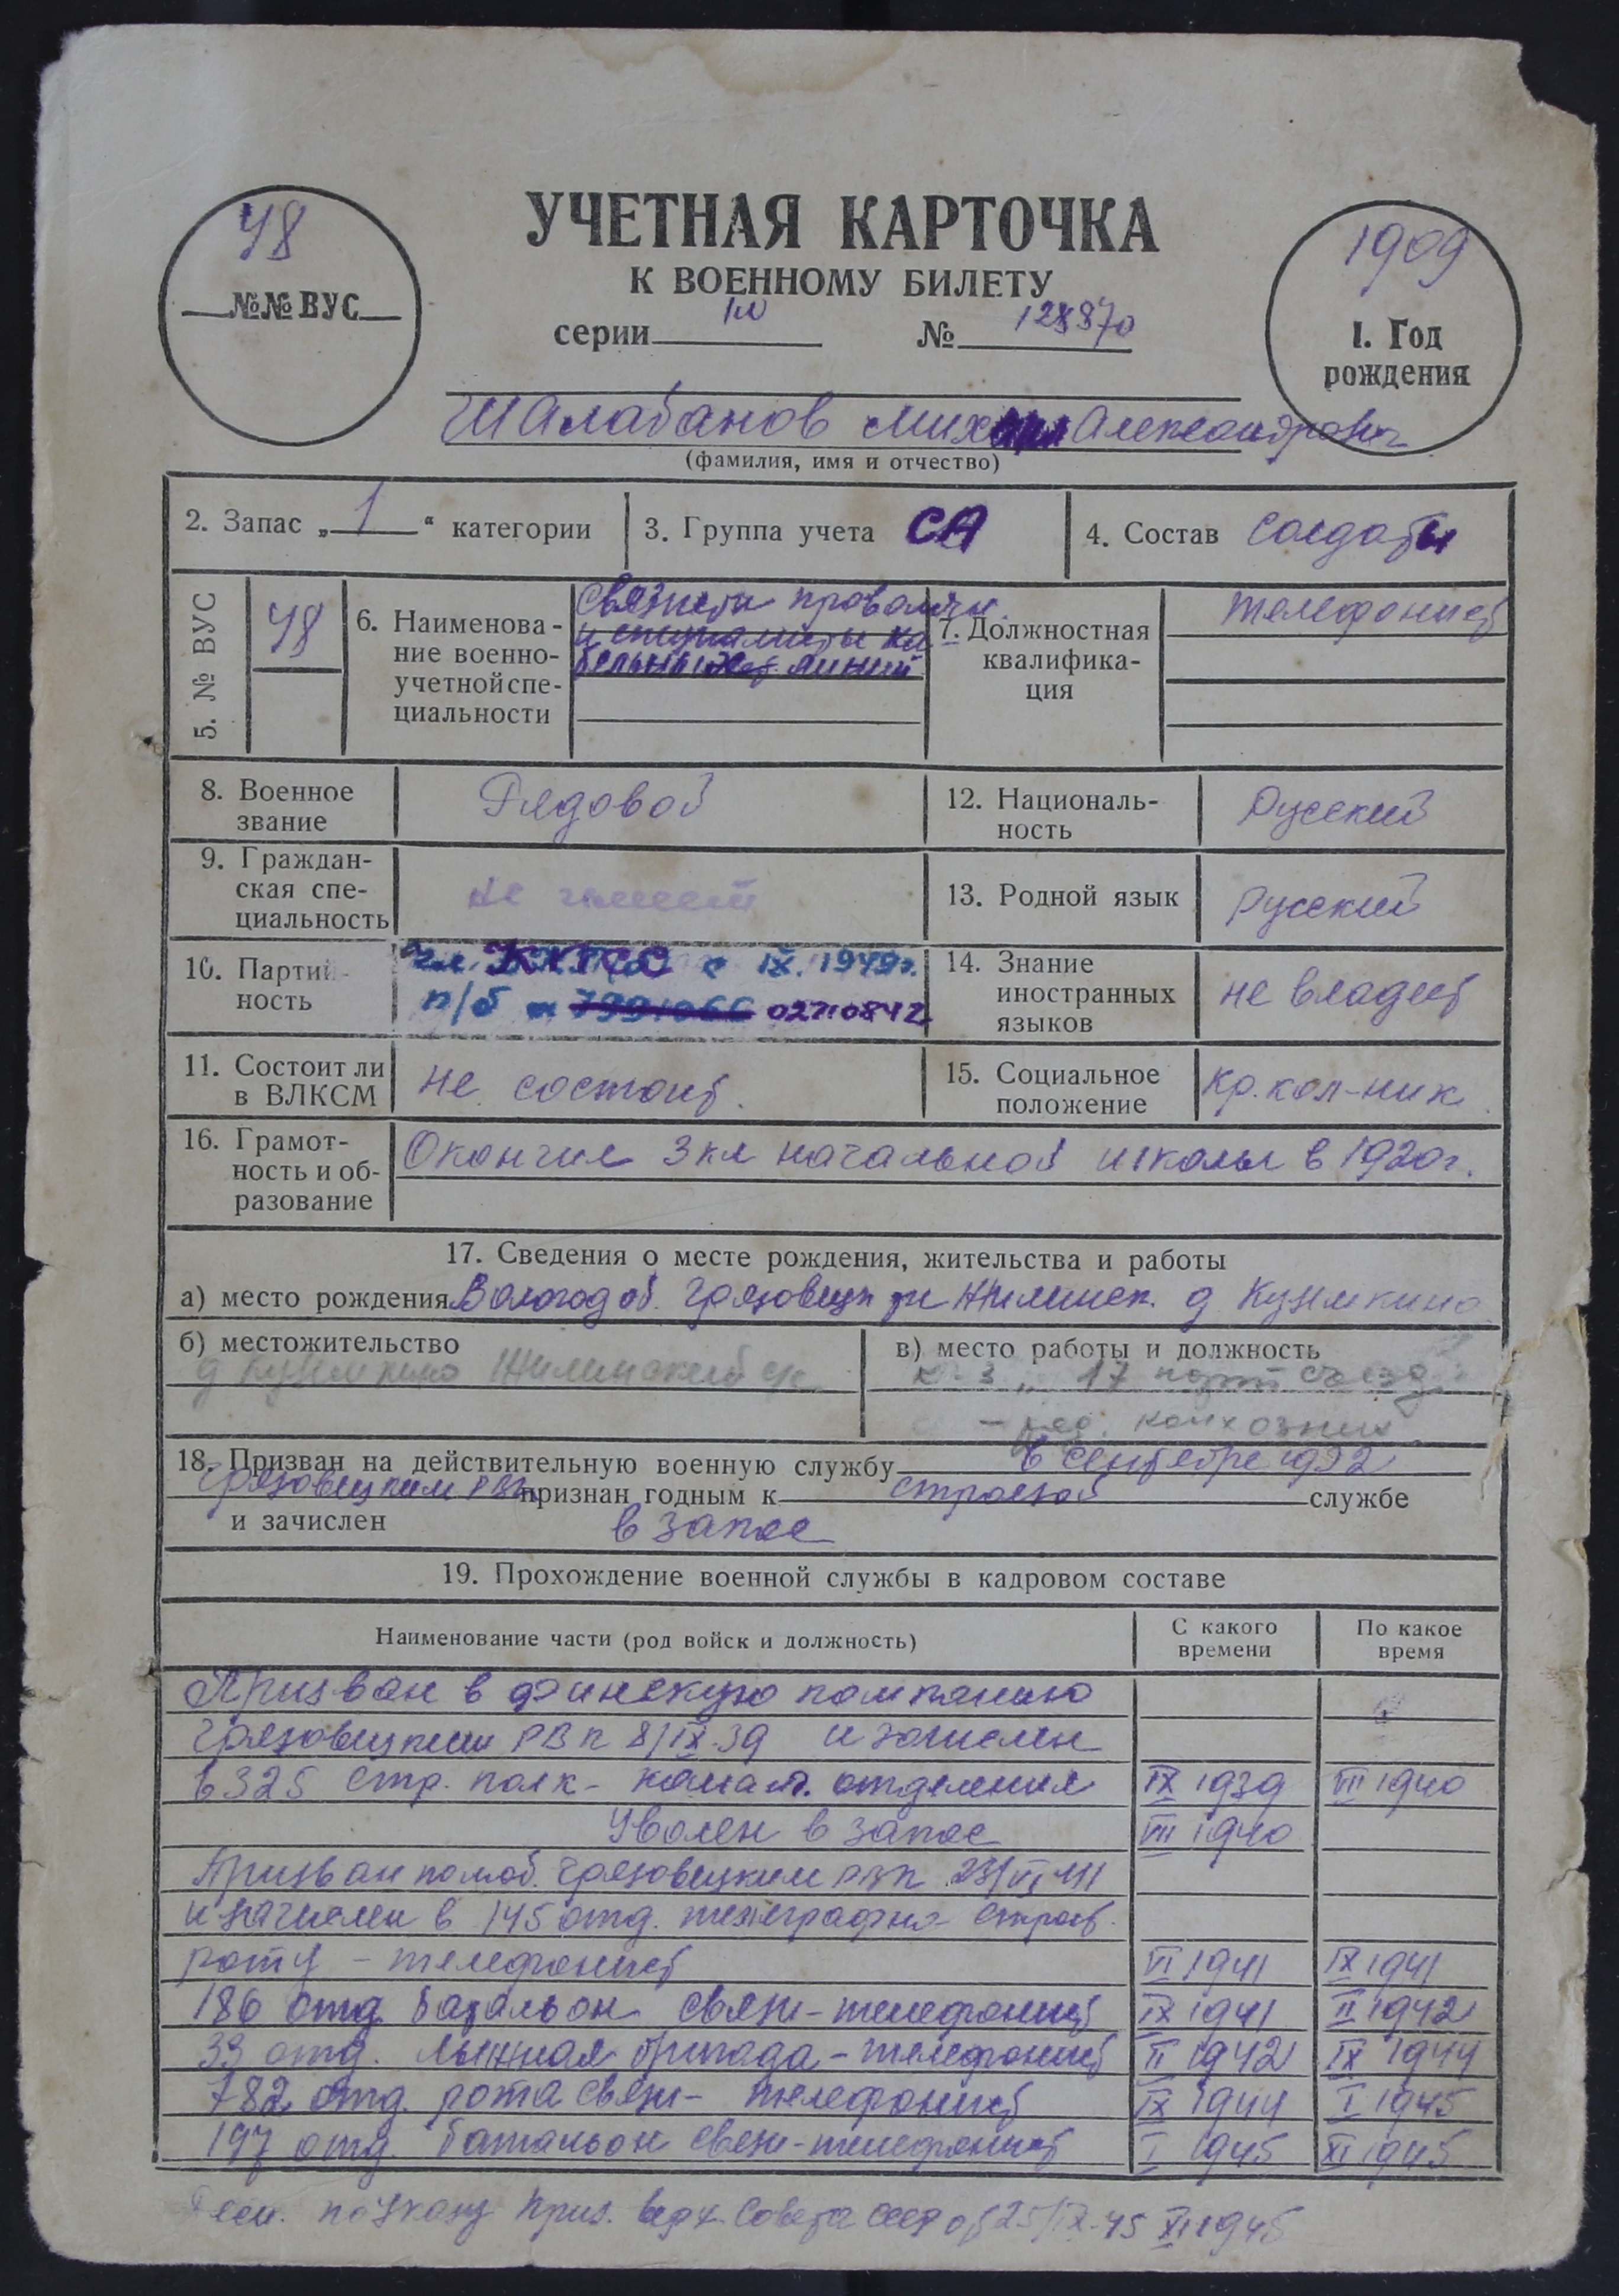 48
№№ ВУС
УЧЕТНАЯ КАРТОЧКА
К ВОЕННОМУ БИЛЕТУ
серии № 128870
1909
1. Год
рождения
Шалабанов Михаил Александрович
(фамилия, имя и отчество)
2. Запас „1“ категории
3. Группа учета СА
4. Состав солдаты
5. № ВУС
48
6. Наименова-
ние военно-
учетной спе-
циальности
Связисты проволочн.
и специалисты ка
бельных линий
7. Должностная
квалифика-
ция
телефонист
8. Военное
звание
Рядовой
12. Националь-
ность
Русский
9. Граждан-
ская спе-
циальность
не имеет
13. Родной язык
русский
10. Партий-
ность
чл. КПСС с IX. 1949г.
п/б № 7991066 02710842
14. Знание
иностранных
языков
не владеет
11. Состоит ли
в ВЛКСМ
не состоит.
15. Социальное
положение
кр. кол-ник
16. Грамот-
ность и об-
разование
Окончил 3 кл начальной школы в 1920г.
17. Сведения о месте рождения, жительства и работы
а) место рождения Вологод об. Грязовецк Жилинск. д Кузьмкино
б) местожительство
д Кузьмкино Жилинский с/с
в) место работы и должность
к-з „17 партсъезд
- ряд. колхозник
18. Призван на действительную военную службу в сентябре 1932
Грязовецким РВК признан годным к строевой службе
и зачислен в запас
19. Прохождение военной службы в кадровом составе
Наименование части (род войск и должность)
С какого
времени
По какое
время
Призван в финскую кампанию
Грязовецким РВК 8/IX-39 и зачислен
в 325 стр. полк - коман. отделения IX 1939 VII 1940
Уволен в запас VII 1940
Призван по моб. Грязовецким РВК 23/VI 41
и зачислен в 145 отд. телеграфно строев.
роту - телефонист VI 1941 IX 1941
186 отд батальон связи - телефонист IX 1941 II 1942
33 отд. лыжная бригада - телефонист II 1942 IX 1944
782 отд. рота связи - телефонист IX 1944 I 1945
197 отд. батальон связи - телефонист I 1945 XI 1945
по Указу През. Верх. Совета СССР от 25/IX-45 XI 1945